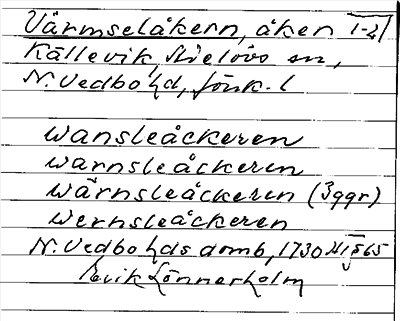 Värmseläkern, åker 1-2
Källevik, Skielövs sn,
N. Vedbo hd, Jönk. l
wansleåckeren
warnsleåckeren
wärnsleåckeren (3ggr)
wernsleåckeren
N. Vedbo hds domb, 1730 65
Erik Lönnerholm